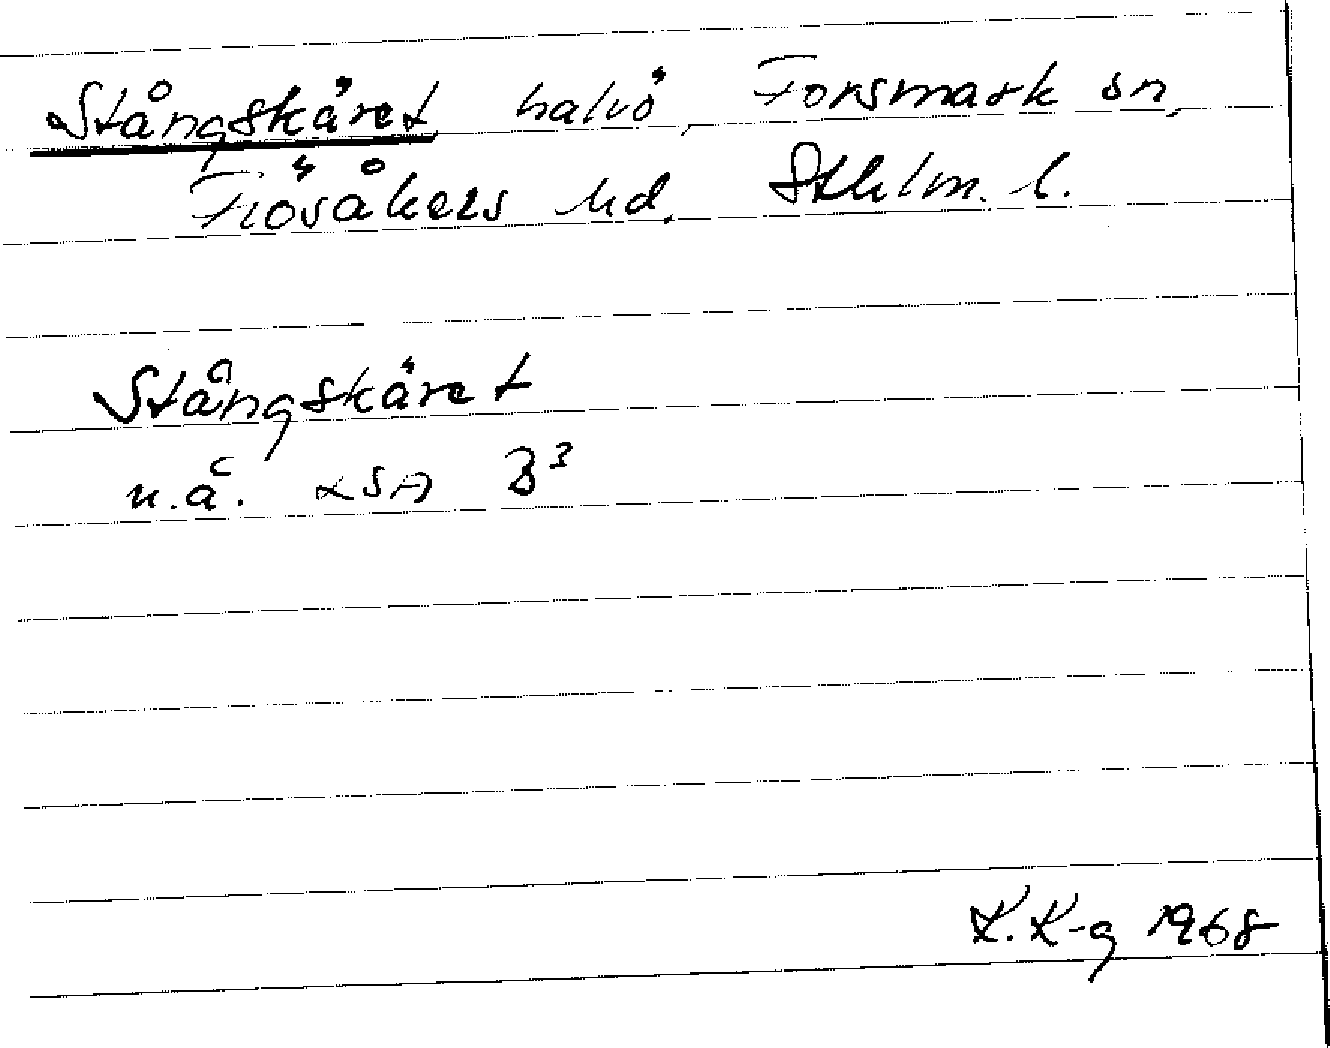 Stångskäret halvö, Forsmark sn,
Frösåkers hd, Sthlm. l.
Stångskäret
u.å. LSA B³
K.K-g 1968